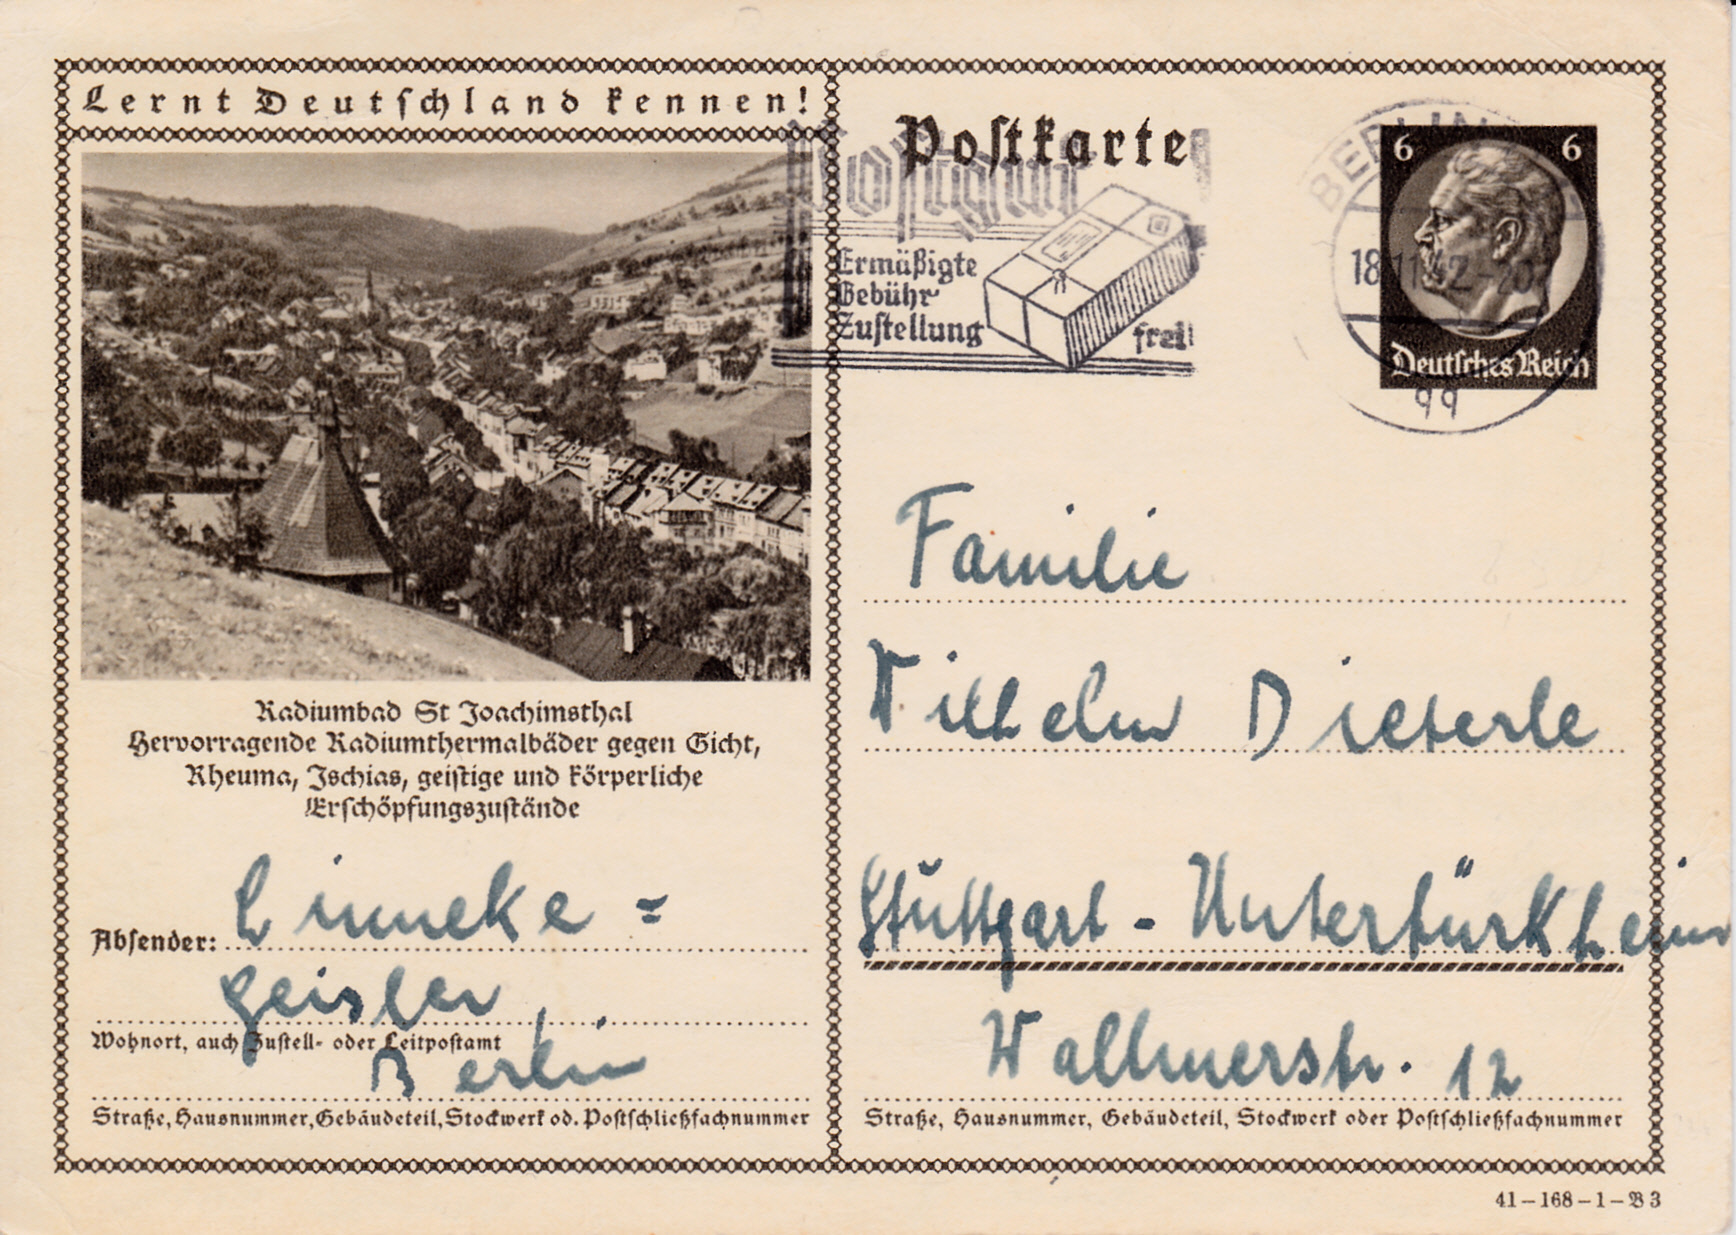 Lernt Deutschland kennen!
Radiumbad St Joachimsthal
Hervorragende Radiumthermalbäder gegen Gicht,
Rheuma, Ischias, geistige und körperliche
Erschöpfungszustände
Absender: Linneke=
Geisler,
Wohnort, auch Zustell- oder Leitpostamt
Berlin
Straße, Hausnummer, Gebäudeteil, Stockwerk od. Postschließfachnummer
Postkarte
Postgut
Ermäßigte
Gebühr
Zustellung frei!
BERLIN
18.11.42.-20
6 6
Deutsches Reich
Familie
Wilhelm Dieterle
Stuttgart-Untertürkheim
Wallmerstr. 12
Straße, Hausnummer, Gebäudeteil, Stockwerk oder Postschließfachnummer
41-168-1-B 3